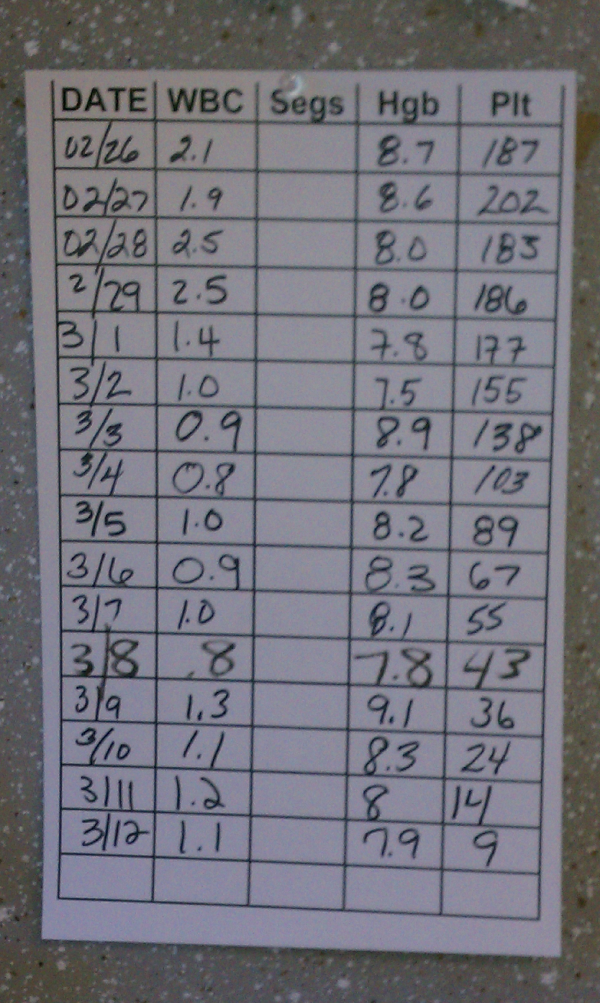 DATE WBC Segs Hgb Plt
02/26 2.1 8.7 187
02/27 1.9 8.6 202
02/28 2.5 8.0 183
2/29 2.5 8.0 186
3/1 1.4 7.8 177
3/2 1.0 7.5 155
3/3 0.9 8.9 138
3/4 0.8 7.8 103
3/5 1.0 8.2 89
3/6 0.9 8.3 67
3/7 1.0 8.1 55
3/8 .8 7.8 43
3/9 1.3 9.1 36
3/10 1.1 8.3 24
3/11 1.2 8 14
3/12 1.1 7.9 9